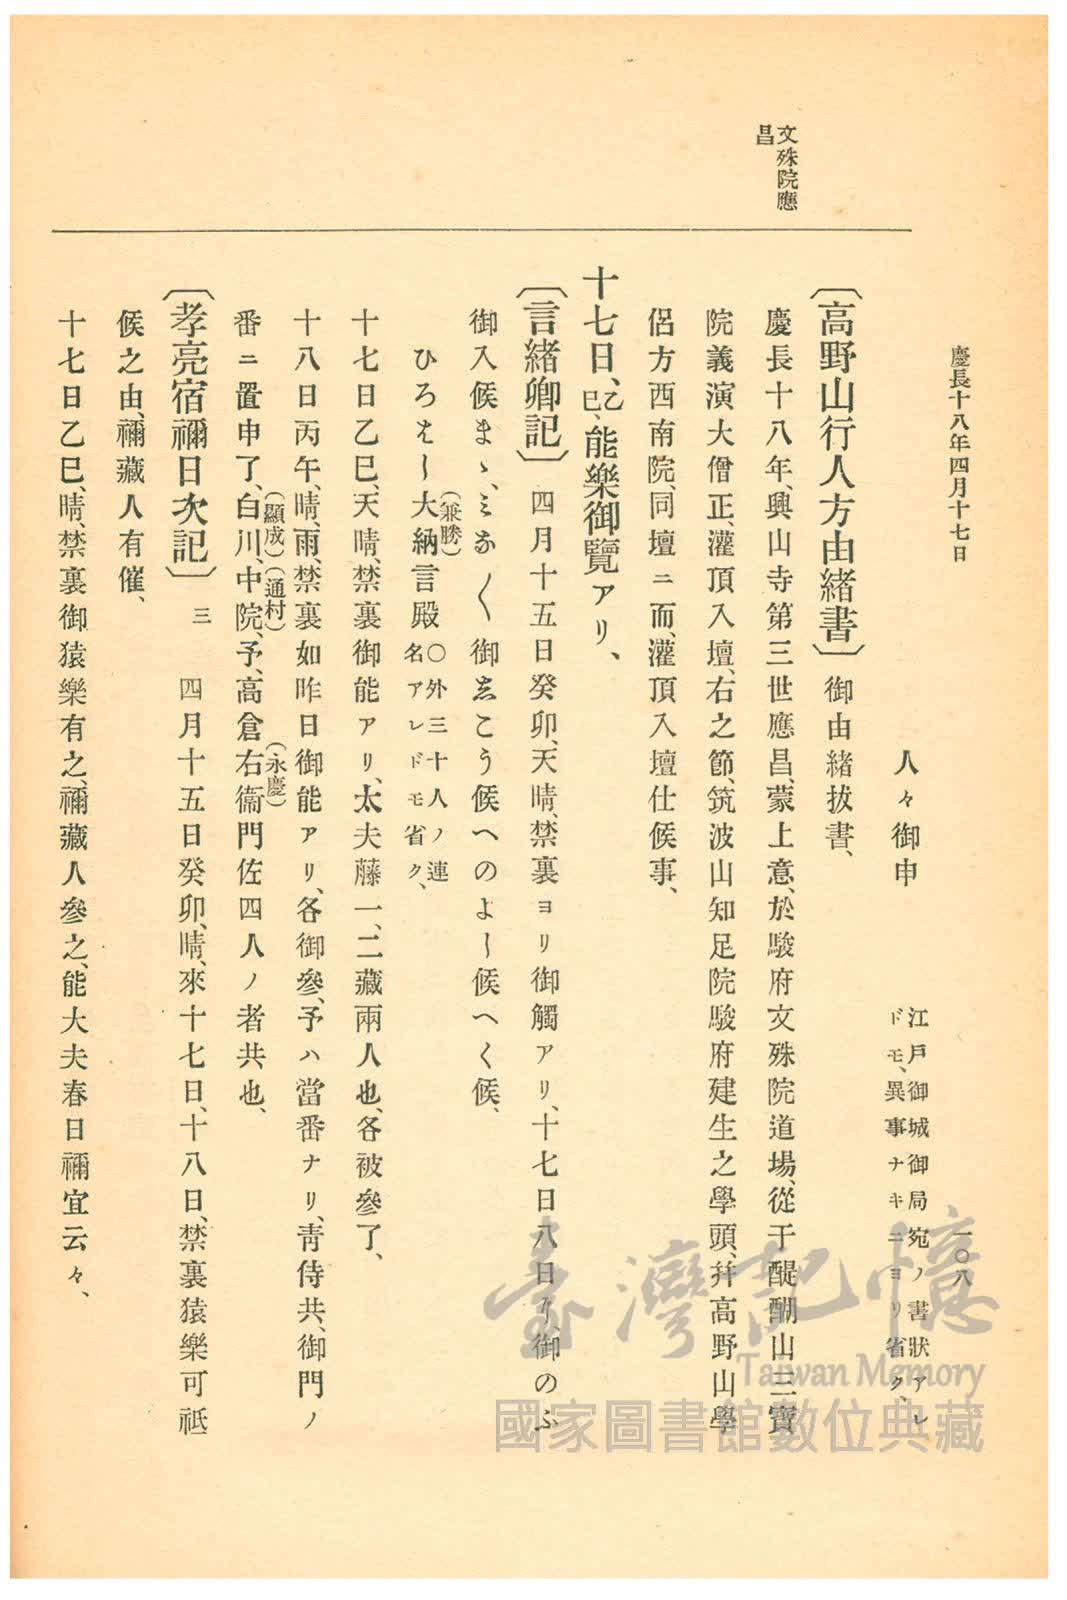 慶長十八年四月十七日
一〇八
文殊院應
昌
人々御申
江戸御城御局宛ノ書狀アレ
ドモ、異事ナキニヨリ省ク、
〔高野山行人方由緒書〕御由緒拔書、
慶長十八年、興山寺第三世應昌、蒙上意、於駿府文殊院道場、從于醍醐山三寶
院義演大僧正、灌頂入壇、右之節、筑波山知足院駿府建生之學頭、幷高野山學
侶方西南院、同壇ニ而、灌頂入壇仕候事、
十七日、乙巳、能樂御覽アリ、
〔言緒卿記〕四月十五日癸卯、天晴、禁裏ヨリ御觸アリ、十七日八日ﾖﾘ、御のふ
御入候まゝ、ミな〱御志こう候へのよし候へく候、
ひろはし大納言殿(兼勝)〇外三十人ノ連名アレドモ省ク、
十七日乙巳、天晴、禁裏御能アリ、太夫藤一、二藏兩人也、各被參了、
十八日丙午、晴、雨、禁裏如昨日御能アリ、各御參、予ハ當番ナリ、靑侍共、御門ノ
番ニ置申了、白川(顯成)、中院(通村)、予、高倉右衞門佐(永慶)四人ノ者共也、
〔孝亮宿禰日次記〕三 四月十五日癸卯、晴、來十七日、十八日、禁裏猿樂可祗
候之由、禰藏人有催、
十七日乙巳、晴、禁裏御猿樂有之、禰藏人參之、能大夫春日禰宜云々、
臺灣記憶
Taiwan Memory
國家圖書館數位典藏